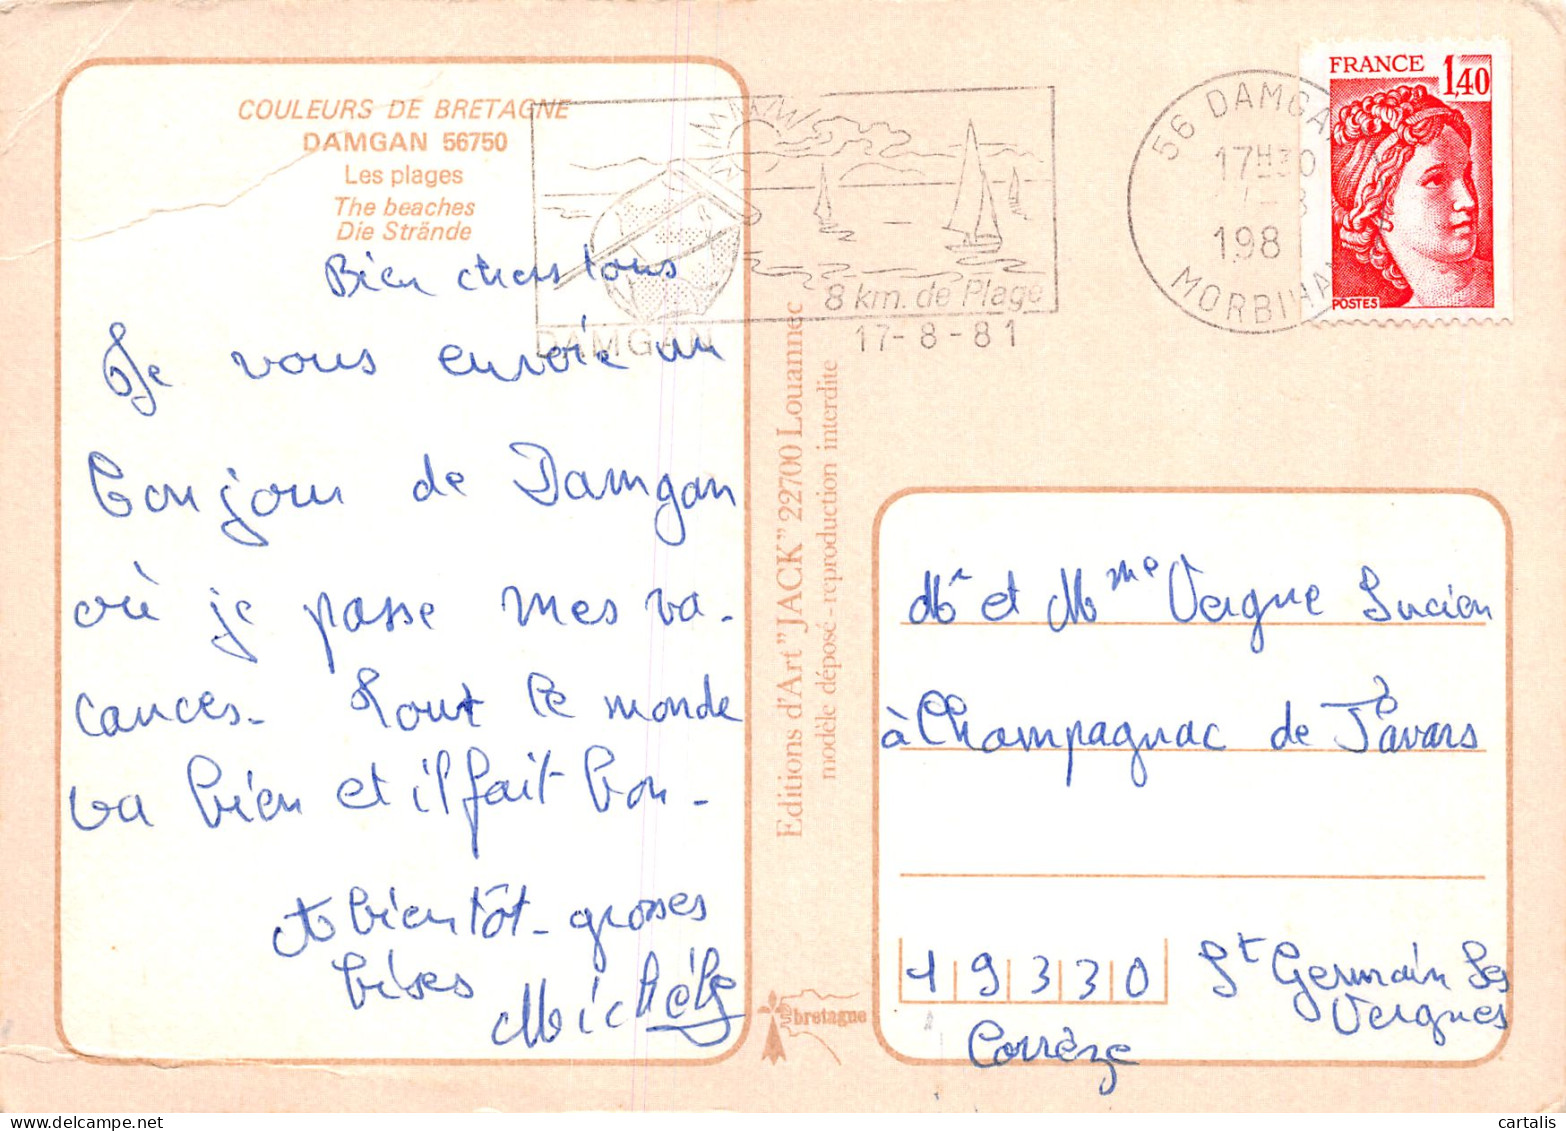 COULEURS DE BRETAGNE
DAMGAN 56750
Les plages
The beaches
Die Strände
Bien chers tous
Je vous envoie un
bonjour de Damgan
où je passe mes va-
cances. Tout le monde
va bien et il fait bon.
A bientôt. grosses
bises
Michèle
DAMGAN
8 km. de Plage
17-8-81
56 DAMGAN
17H30
198
MORBIHAN
FRANCE 1,40
POSTES
Editions d'Art "JACK" 22700 Louannec
modèle déposé - reproduction interdite
bretagne
Mr et Mme Vergne Lucien
à Champagnac de
19330 St Germain Les
Vergnes
Corrèze
cartalis